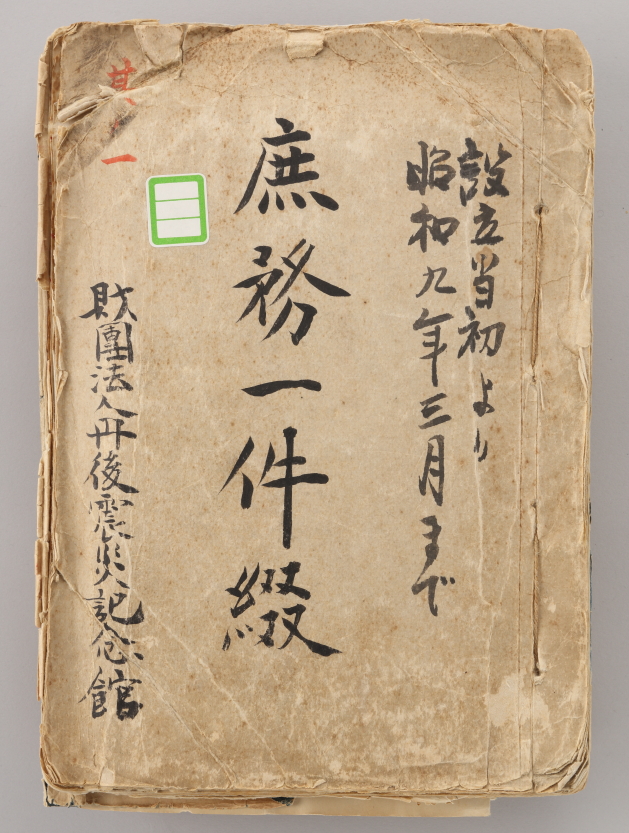 設立当初より
昭和九年三月まで
庶務一件綴
其一
財團法人丹後震災記念館